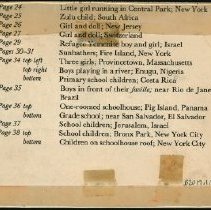 Page 24 Little girl running in Central Park; New York
Page 25 Zulu child; South Africa
Page 26 Girl and doll; New Jersey
Page 27 Girl and doll; Switzerland
Page 29 Refugee Yemenite boy and girl; Israel
Pages 30–31 Sunbathers; Fire Island, New York
Page 34 top left Three girls, Provincetown, Massachusetts
top right Boys playing in a river; Enugu, Nigeria
bottom Primary school children; Costa Rica
Page 35 Boys in front of their favelle; near Rio de Janei
Brazil
Page 36 top One-roomed schoolhouse; Pig Island, Panama
bottom Grade school; near San Salvador, El Salvador
Page 37 School children; Jerusalem, Israel
Page 38 top School children; Bronx Park, New York City
bottom Children on schoolhouse roof; New York City